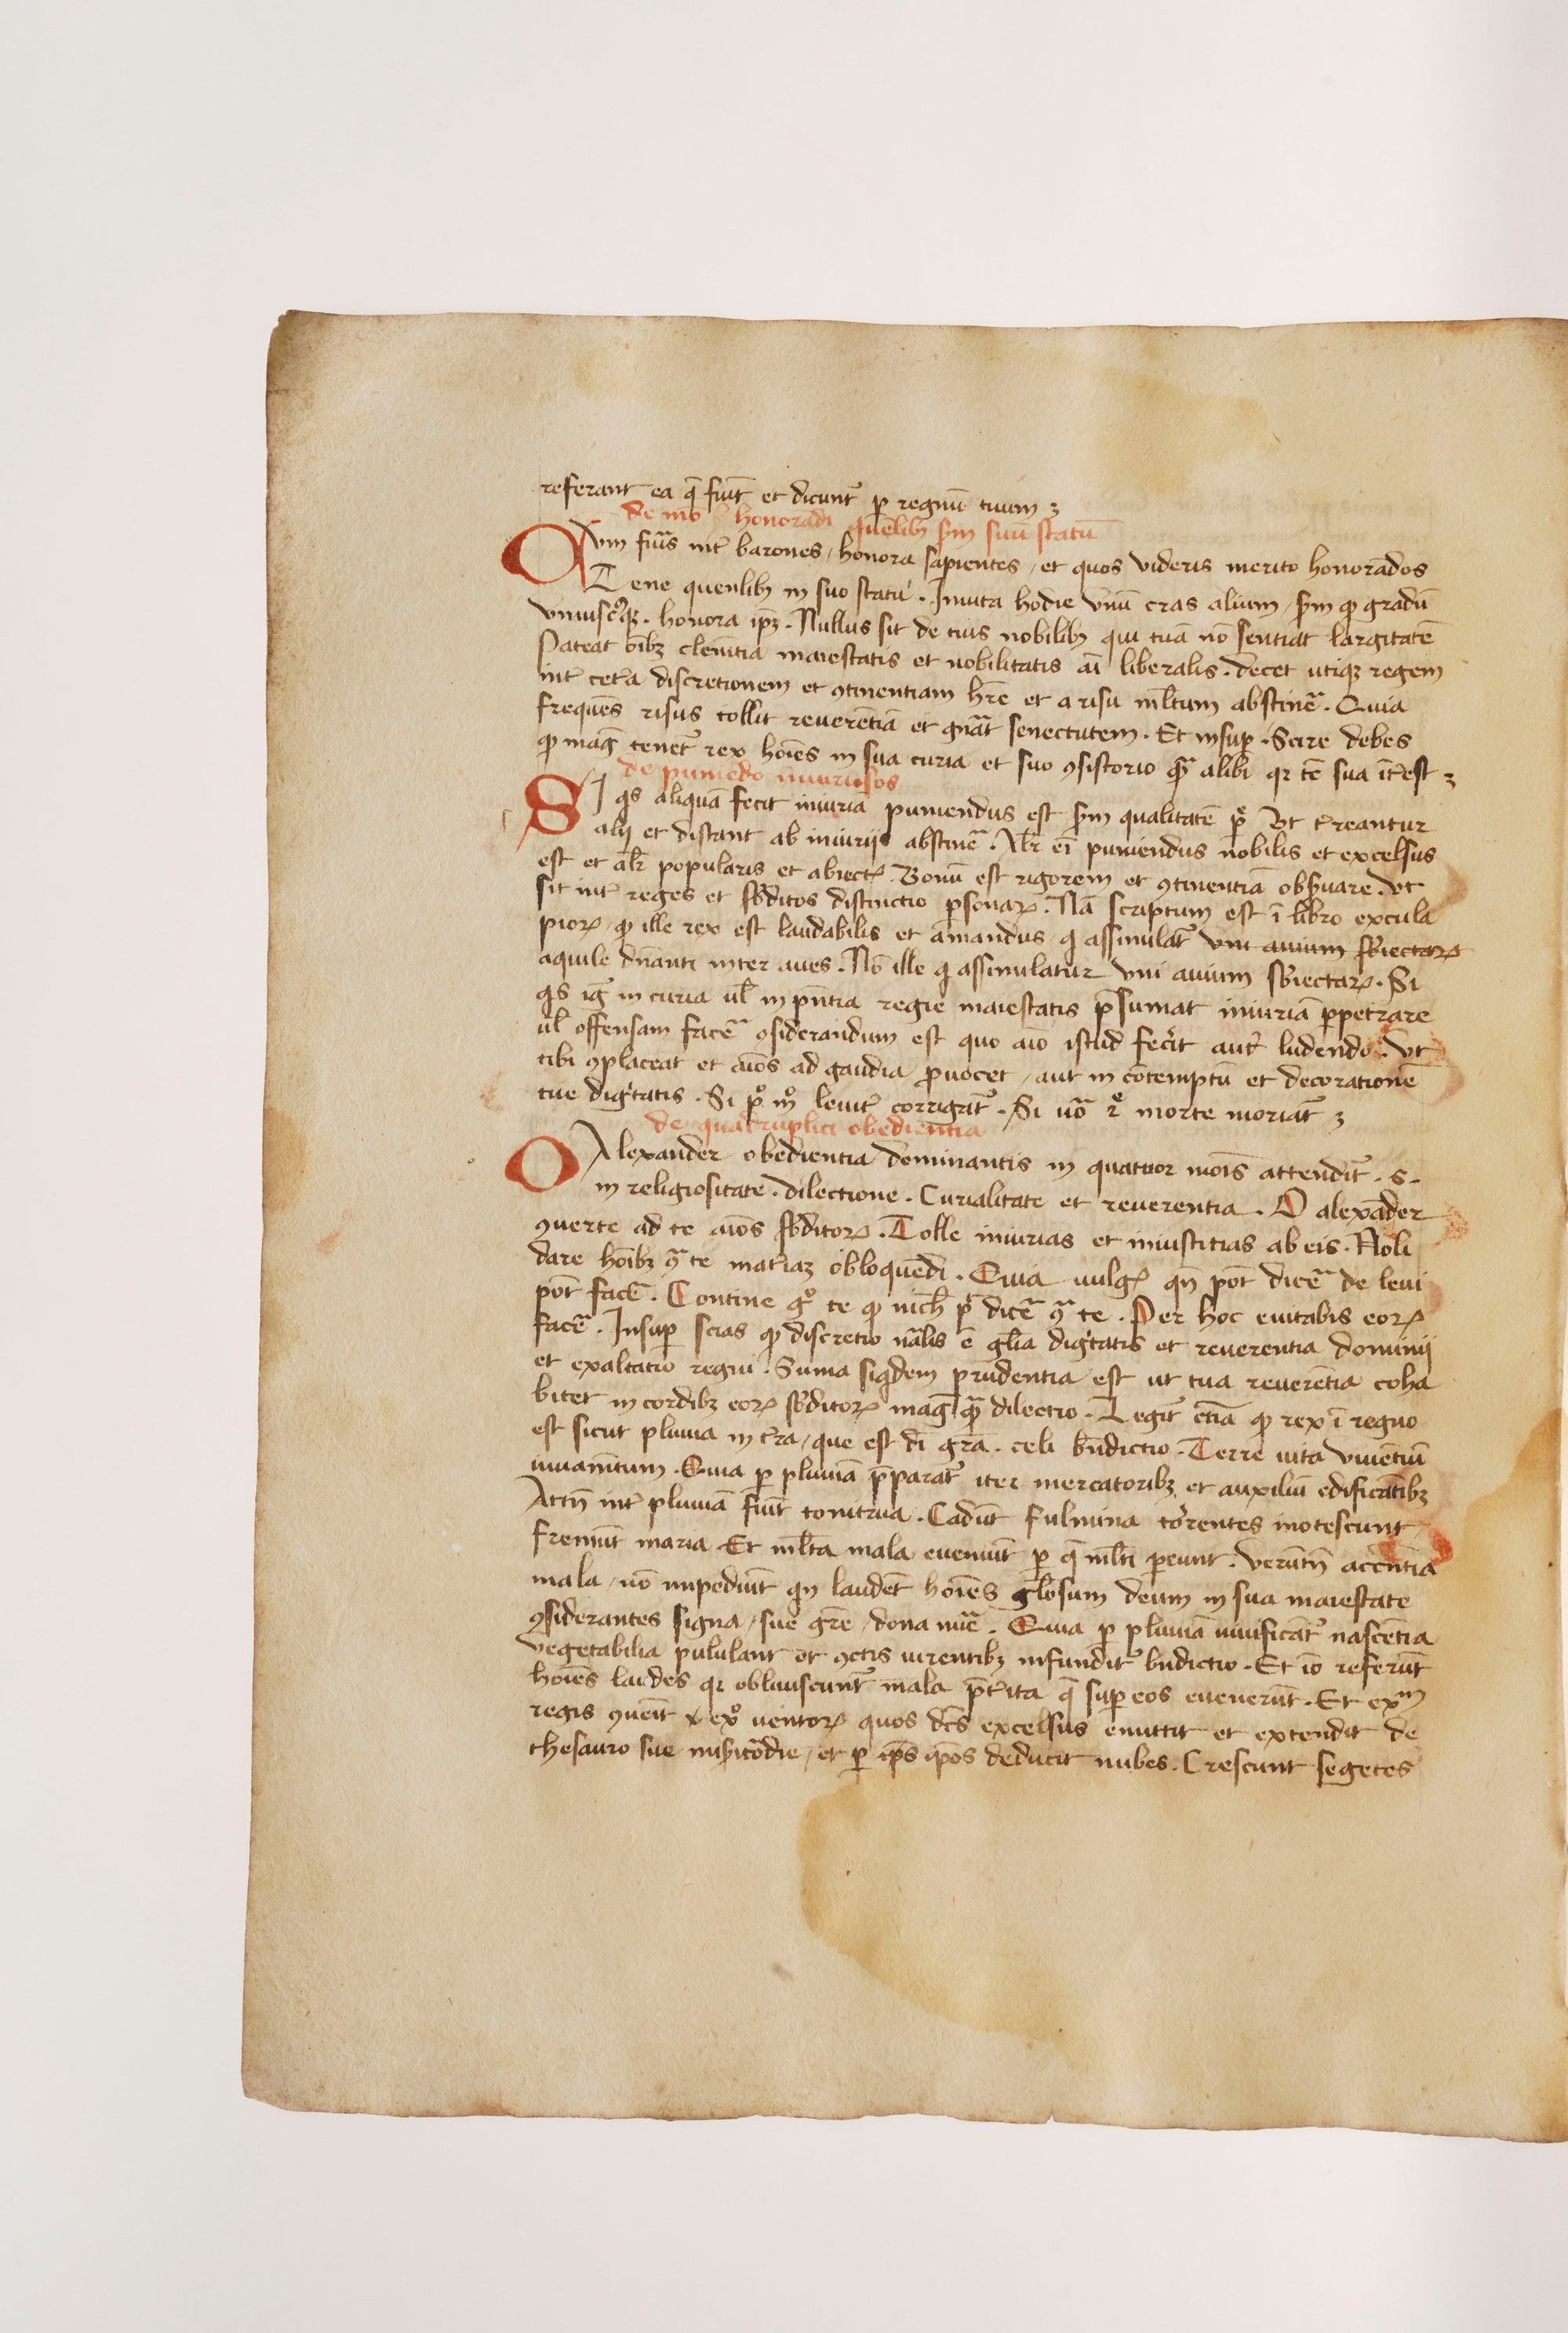 referant ea q̄ fiūt et dicunt᷑ ꝑ regnū tuum ꝫ
de mō honorādi quēlibꝫ ẜm suū statū
Qvm fūis int̄ barones / honora sapientes / et quos videris merito honorādos
Tene quenlibꝫ in suo statu . Inuita hodie vnū cras alium / ẜm ꝙ gradū
vniuscꝰqꝫ . honora ip̄ꝫ . Nullus sit de tuis nobilibꝫ qui tuā nō sentiat largitatē
Pateat oībꝫ clemītia maiestatis et nobilitatis aī liberalis . decet utiqꝫ regem
int̄ cet̄a discretionem et ꝯtinentiam hr̄e et a risu ml̄tum abstinē . Quia
frequēs risus tollit reuerētiā et gnāt senectutem . Et insuꝑ . Scire debes
ꝙ maḡ tenet᷑ rex hoīes in sua curia et suo ꝯsistorio qᷓ alibi qꝛ tē sua īt̄est ꝫ
de puniēdo iniuriosos
SI qͥs aliquā fecit iniuriā puniendus est ẜm qualitatē pͥ̄ Vt t̄reantur
alij et distant ab iniurijs abstinē . Alr̄ eī puniendus nobilis et excelsus
est et alr̄ popularis et abiectꝰ . Bonū est rigorem et ꝯtinentiā obẜuare . vt
sit int̄ reges et sb̄ditos distinctio ꝑsonaꝝ . Nā scriptum est ī libro excula
pioꝝ / ꝙ ille rex est laudabilis et amandus / qͥ assimulat᷑ vni auium sb̄iectaꝝ
aquile dn̄anti inter aues . Nō ille qͥ assimulatur vni auium sb̄iectaꝝ . Si
qͥs iḡ in curia ul̄ in pn̄tia regie maiestatis p̄sumat iniuriā ꝑpetrare
ul̄ offensam facē ꝯsiderandum est quo aīo istud fec̄it aut̄ ludendo . Vt
tibi ꝯplaceat et aīos ad gaudia ꝓuocet / aut in cōtemptū et decorationē
tue diḡtatis . Si pͦ mͦ leuit̄ corrigat᷑ . Si uō 2ͦ morte moriat᷑ ꝫ
de quadruplici obedientia
O Alexander obedientia dominantis in quatuor moīs attendit᷑ . s .
in religiositate . dilectione . Curialitate et reuerentia . O alexāder
ꝯuerte ad te aīos sb̄ditoꝝ . Tolle iniurias et iniusticias ab eis . Noli
dare hoībꝫ ꝯᷓ te mat̄iaꝫ obloquēdi . Quia uulgꝰ qn̄ pōt dicē de leui
pōt facē . Contine gͦ te ꝙ nich̄ pͥ dicē ꝯᷓ te . Per hoc euitabis eoꝝ
facē . Insuꝑ scias ꝙ discretio nālis ē gl̄ia diḡtatis et reuerentia dominij
et exaltatio regni . Suma siqͥdem prudentia est ut tua reuerētia coha
bitet in cordibꝫ eoꝝ sb̄ditoꝝ maḡ qᷓ dilectio . Legit᷑ etiā ꝙ rex ī regno
est sicut pluuia in t̄ra / que est dī grā . celi bn̄dictio . Terre uita viuētiū
iuuamītum . Quia ꝑ pluuiā p̄parat᷑ iter mercatoribꝫ et auxiliū edificātibꝫ
Attn̄ int̄ pluuiā fiūt tonitrua . Cadūt fulmina tōrentes inotescunt
fremūt maria . Et ml̄ta mala eueniūt ꝑ q̄ ml̄ti ꝑeunt . Verūtn̄ accn̄tia
mala / nō inpediūt qn̄ laudēt hoīes gl̄osum deum in sua maiestate
ꝯsiderantes signa / sue grē / dona mīe . Quia ꝑ pluuiā uiuificāt᷑ nascētia
vegetabilia pululant et ꝯctis uirentibꝫ infundit᷑ bn̄dictio . Et iō referūt
hoīes laudes qꝛ obliuiscunt᷑ mala p̄t̄ita q̄ suꝑ eos euenerūt . Et exᵐ
regis ꝯuenīt exͦ ventoꝝ quos dc̄s excelsus emittit et extendit de
thesauro sue mīẜicordie / et ꝑ ip̄s ip̄os deducit nubes . Crescunt segetes